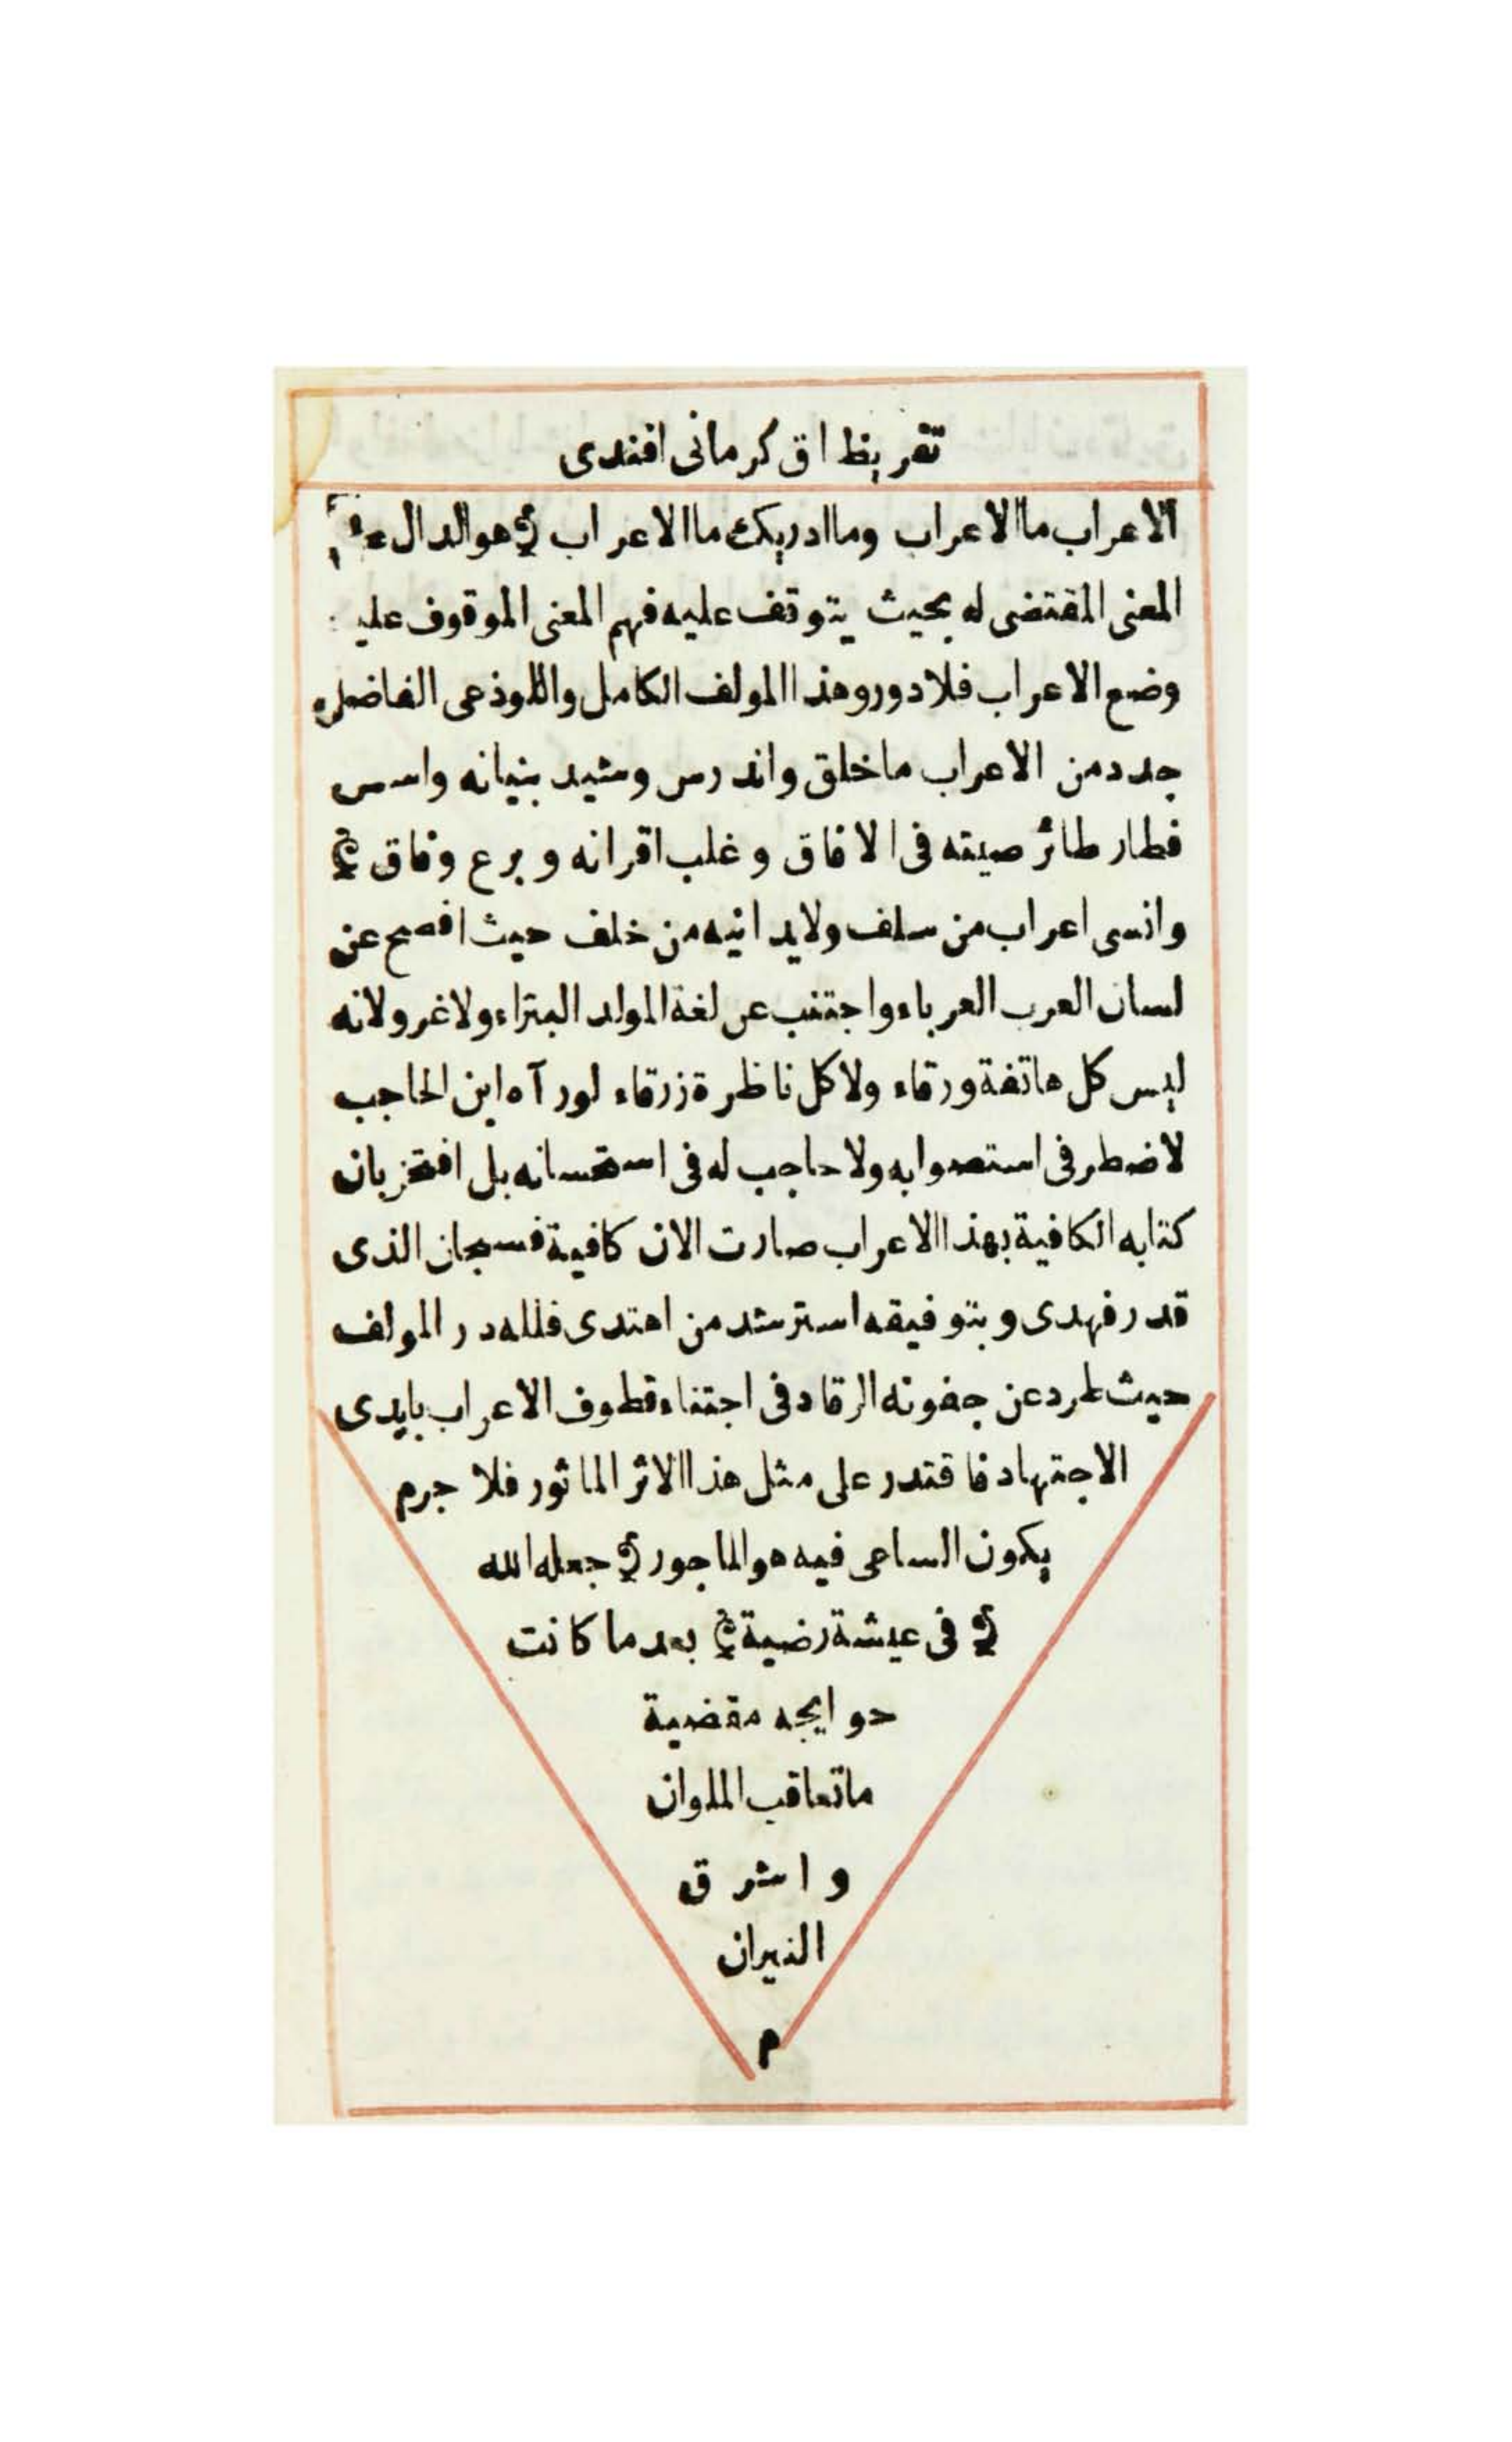 تقريظ اق كرمانى افندى
الاعراب ما الاعراب وما ادريك ما الاعراب هو الدال
المعنى المقتضى له بحيث يتوقف عليه فهم المعنى الموقوف عليه
وضع الاعراب فلا دور وهذا المولف الكامل واللوذعى الفاضل
جدد من الاعراب ما خلق واندرس وشيد بنيانه واسس
فطار طائر صيته فى الافاق وغلب اقرانه وبرع وفاق
وانسى اعراب من سلف ولا يدانيه من خلف حيث افصح عن
لسان العرب العرباء واجتنب عن لغة المولد البتراء ولا غرو لانه
ليس كل هاتفة ورقاء ولا كل ناظرة زرقاء لورآه ابن الحاجب
لاضطر فى استصوابه ولا حاجب له فى استحسانه بل افتخر بان
كتابه الكافية بهذا الاعراب صارت الان كافية فسبحان الذى
قدر فهدى وبتوفيقه استرشد من اهتدى فلله در المولف
حيث طرد عن جفونه الرقاد فى اجتناء قطوف الاعراب بايدى
الاجتهاد فاقتدر على مثل هذا الاثر الماثور فلا جرم
يكون الساعى فيه هو الماجور جعله الله
فى عيشة رضية بعد ما كانت
حوايجه مقضية
ما تعاقب الملوان
واشرق
النيران
م